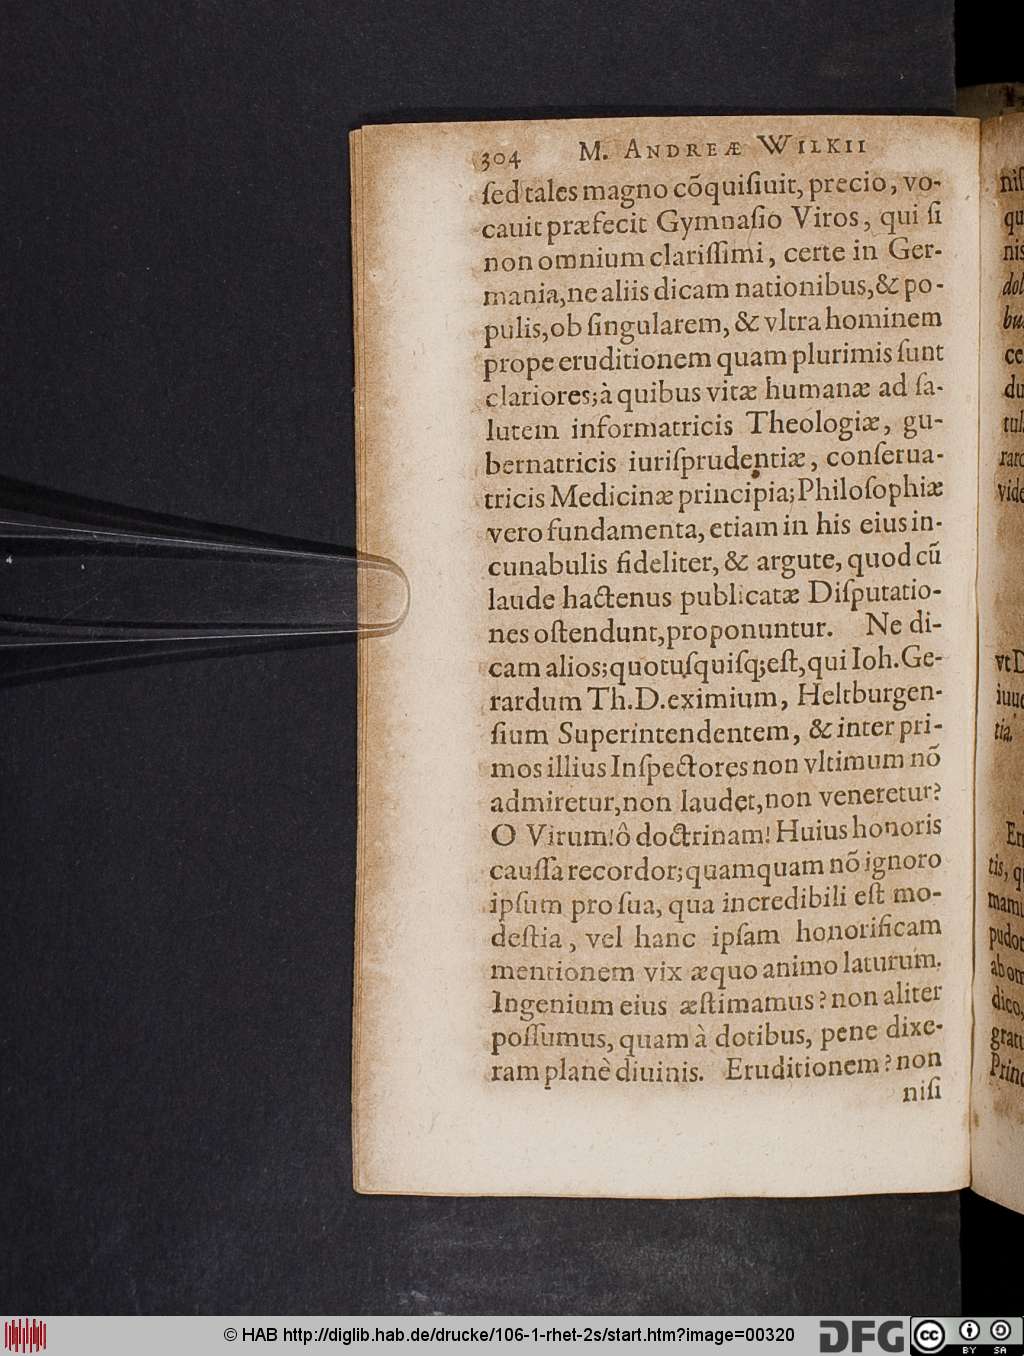 304 M. ANDREÆ WILKII
ſed tales magno cõquiſiuit, precio, vo-
cauit præfecit Gymnaſio Viros, qui ſi
non omnium clariſſimi, certe in Ger-
mania, ne aliis dicam nationibus, & po-
pulis, ob ſingularem, & vltra hominem
prope eruditionem quam plurimis ſunt
clariores; à quibus vitæ humanæ ad ſa-
lutem informatricis Theologiæ, gu-
bernatricis iuriſprudentiæ, conſerua-
tricis Medicinæ principia; Philoſophiæ
vero fundamenta, etiam in his eius in-
cunabulis fideliter, & argute, quod cũ
laude hactenus publicatæ Diſputatio-
nes oſtendunt, proponuntur. Ne di-
cam alios; quotuſquiſq; eſt, qui Ioh. Ge-
rardum Th. D. eximium, Heltburgen-
ſium Superintendentem, & inter pri-
mos illius Inſpectores non vltimum nõ
admiretur, non laudet, non veneretur?
O Virum! ô doctrinam! Huius honoris
cauſſa recordor; quamquam nõ ignoro
ipſum pro ſua, qua incredibili eſt mo-
deſtia, vel hanc ipſam honorificam
mentionem vix æquo animo laturum.
Ingenium eius æſtimamus? non aliter
poſſumus, quam à dotibus, pene dixe-
ram planè diuinis. Eruditionem? non
niſi
© HAB http://diglib.hab.de/drucke/106-1-rhet-2s/start.htm?image=00320
DFG
cc BY SA